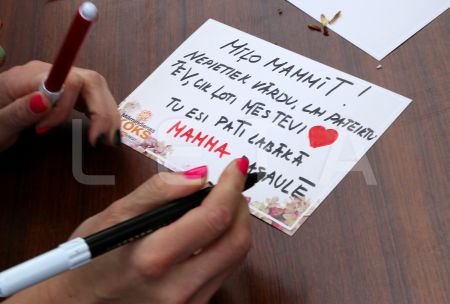 MIĻO MAMMIT!
NEPIETIEK VĀRDU, LAI PATEIKTU
TEV, CIK ĻOTI MĒS TEVI
TU ESI PATI LABĀKĀ
MAMMA PASAULĒ
LETA